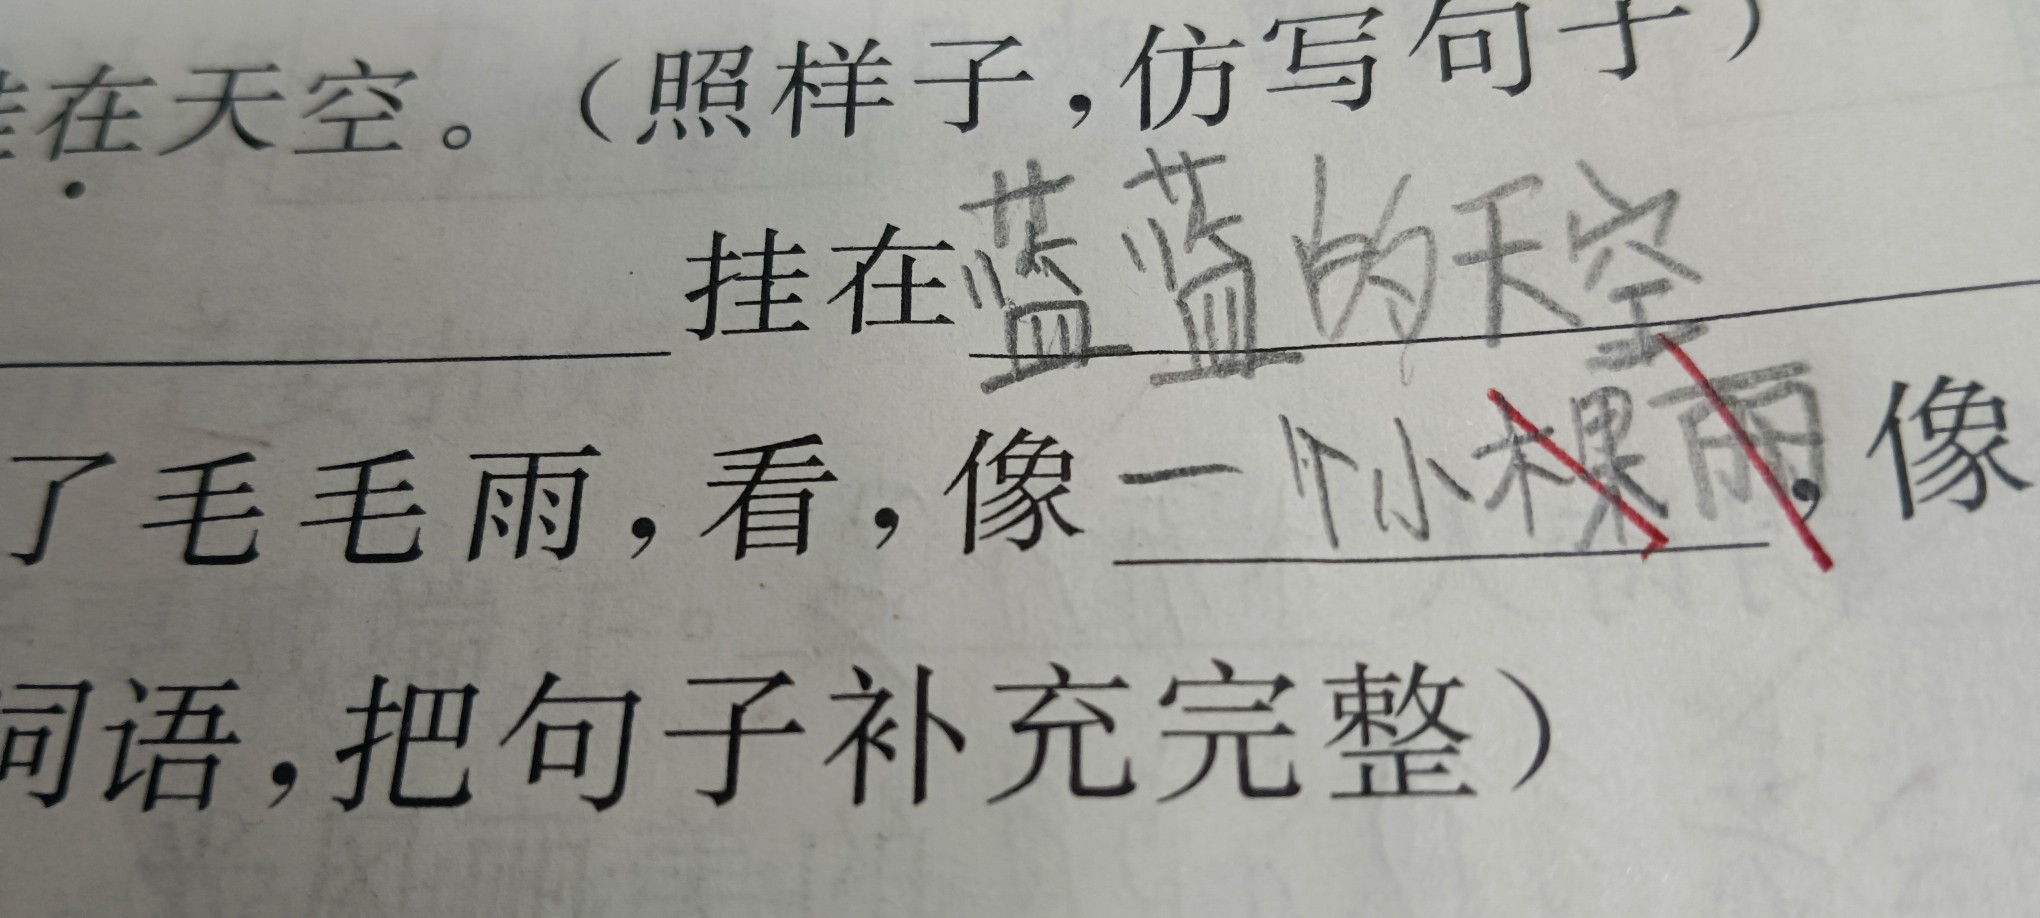 在天空。（照样子，仿写句子）
挂在蓝蓝的天空
了毛毛雨，看，像一个小棵雨，像
词语，把句子补充完整）